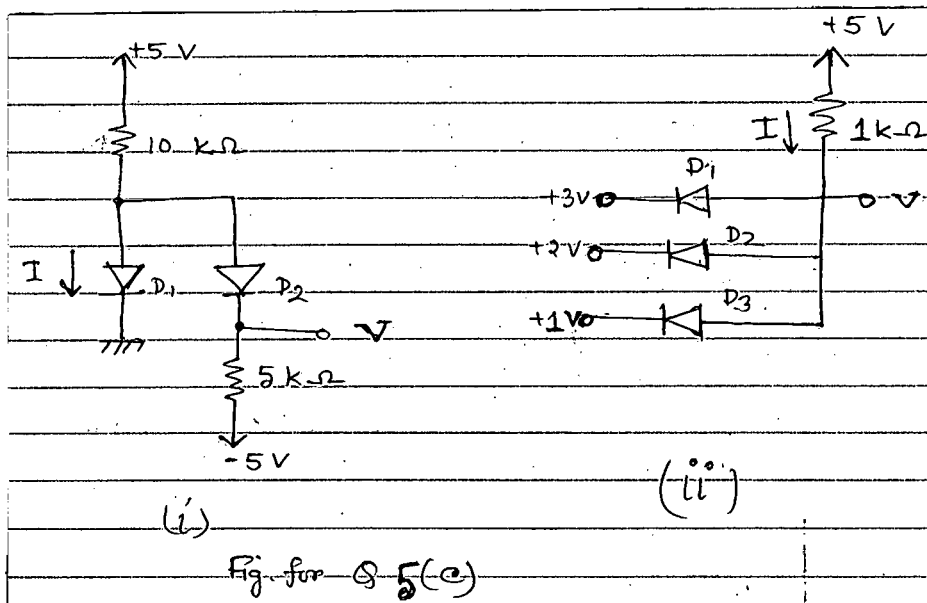 +5 V
10 kΩ
I
D1
D2
V
5 kΩ
-5 V
(i)
+5 V
I
1 kΩ
D1
+3V
V
+2V
D2
D3
+1V
(ii)
Fig. for Q 5(c)